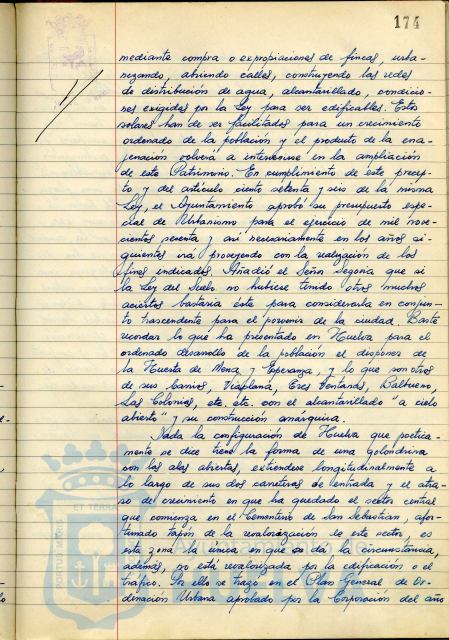 174
mediante compra o expropiaciones de fincas, urba-
nizando, abriendo calles, construyendo las redes
de distribución de agua, alcantarillado, condicio-
nes exigidas por la Ley para ser edificables. Estos
solares han de ser facilitados para un crecimiento
ordenado de la población y el producto de la ena-
jenación volverá a invertirse en la ampliación
de este Patrimonio. En cumplimiento de este precep-
to y del artículo ciento setenta y seis de la misma
Ley, el Ayuntamiento aprobó su presupuesto espe-
cial de Urbanismo para el ejercicio de mil nove-
cientos sesenta y así necesariamente en los años si-
guientes irá proveyendo con la realización de los
fines indicados. Añadió el Señor Segovia que si
la Ley del Suelo no hubiese tenido otros muchos
aciertos bastaría éste para considerarla en conjun-
to trascendente para el porvenir de la ciudad. Baste
recordar lo que ha presentado en Huelva para el
ordenado desarrollo de la población el disponer de
la Huerta de Mena y Esperanza, y lo que son otros
de sus barrios, Viaplana, Tres Ventanas, Balbueno,
Las Colonias, etc. etc. con el alcantarillado "a cielo
abierto" y su construcción anárquica.
Dada la configuración de Huelva que poética-
mente se dice tiene la forma de una golondrina
con las alas abiertas, extiéndese longitudinalmente a
lo largo de sus dos carreteras de entrada y el atra-
so del crecimiento en que ha quedado el sector central
que comienza en el Cementerio de San Sebastián, afor-
tunado tapón de la revalorización de este sector, es
esta zona la única en que se da la circunstancia,
además, no está revalorizada por la edificación o el
tráfico. Por ello se trazó en el Plan General de Or-
denación Urbana aprobado por la Corporación del año
ET TERRA
PORTUS MARIS
Ayuntamiento de